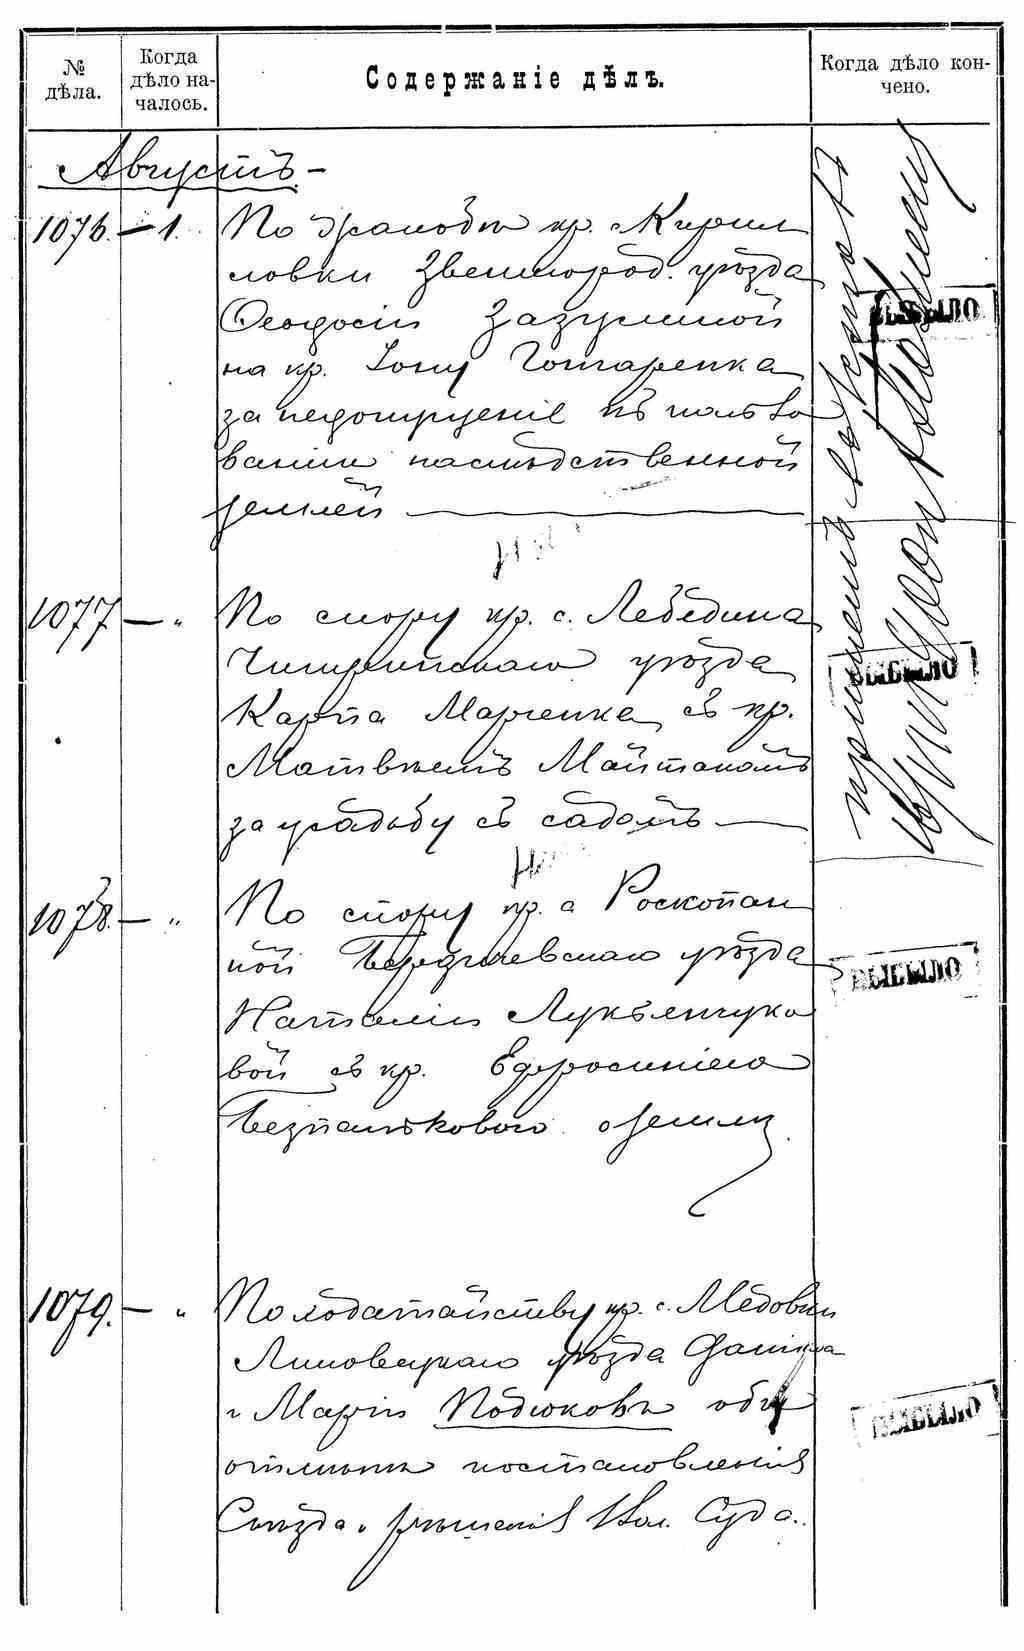 № дѣла.
Когда дѣло началось.
Содержаніе дѣлъ.
Когда дѣло кончено.
Августъ –
1076. – 1. По жалобѣ кр. с. Кирил
ловки Звенигород. уѣзда
Ѳеодосіи Зазулиной
на кр. Іону Гончаренка
за недопущеніе къ пользо
ванію наслѣдственной
землей
1077 – „ По спору кр. с. Лебедина
Чигиринскаго уѣзда
Карпа Марченка съ кр.
Матвѣемъ
за усадьбу съ садомъ
1078. – „ По спору кр. с. Роскопан
ной Бердичевскаго уѣзда
Наталіи Лукьянчуко
вой съ кр. Ефросиніею
о землѣ
1079. – „ По ходатайству кр. с. Медовки
Липовецкаго уѣзда Даніила
и Маріи Подюковъ объ
отмѣнѣ постановленія
Съѣзда и рѣшенія Вол. Суда.
ВЫБЫЛО
ВЫБЫЛО
ВЫБЫЛО
ВЫБЫЛО